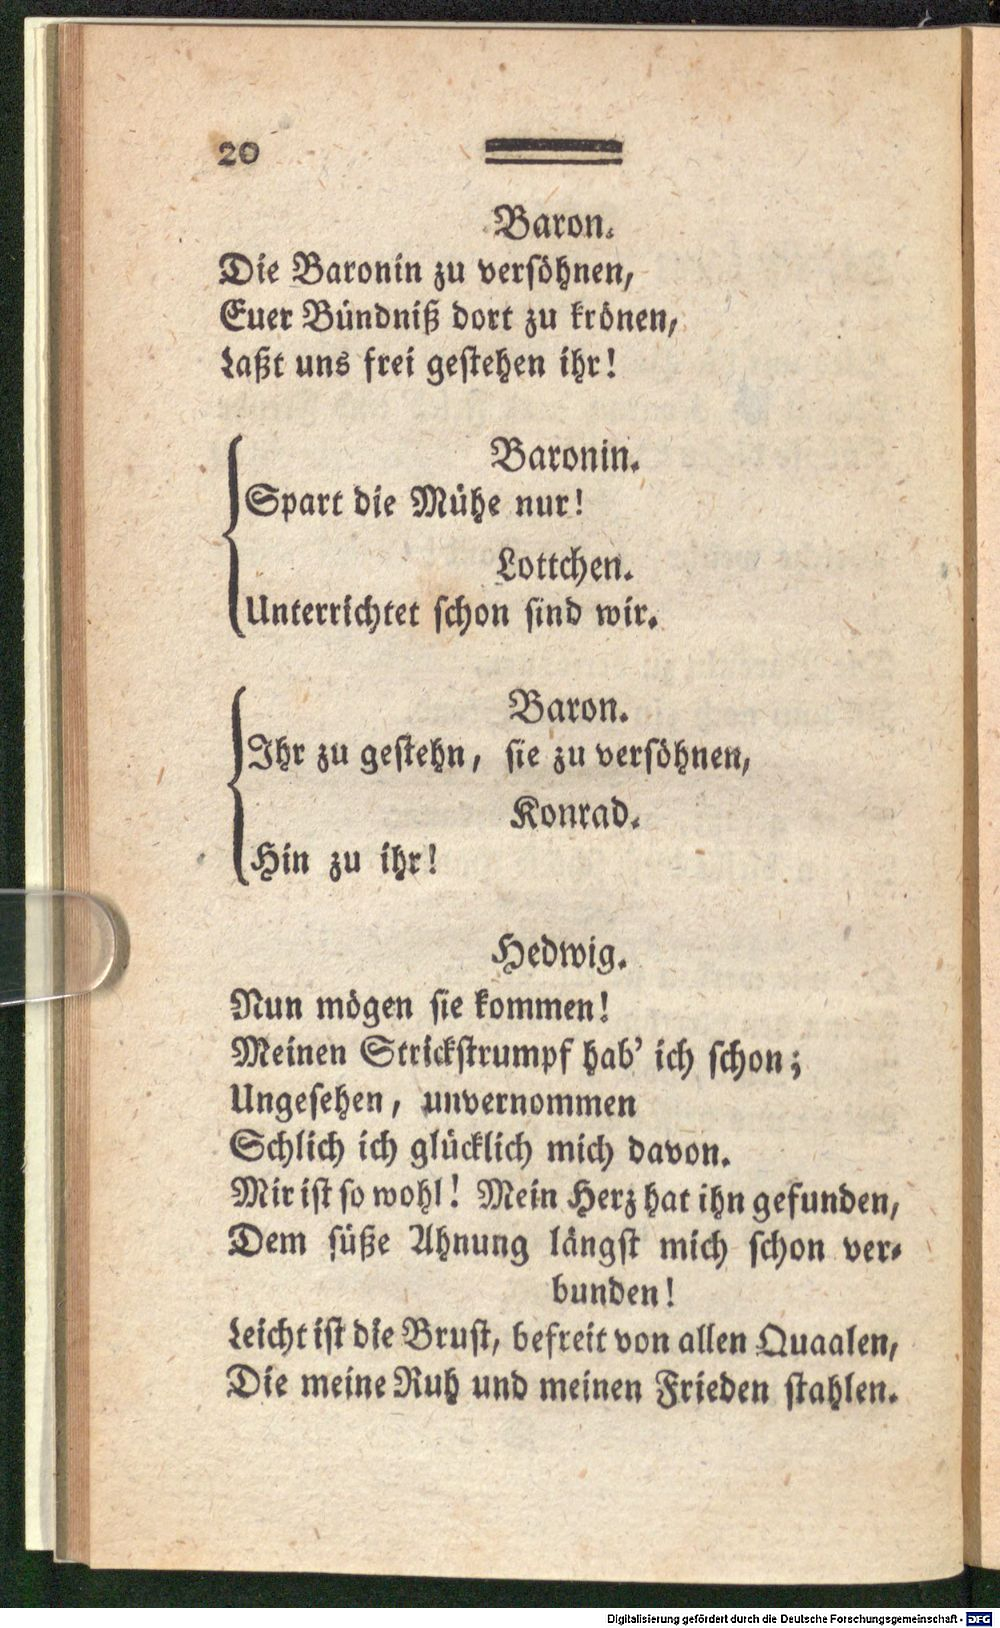 20
Baron.
Die Baronin zu verſöhnen,
Euer Bündniß dort zu krönen,
Laßt uns frei geſtehen ihr!
Baronin.
Spart die Mühe nur!
Lottchen.
Unterrichtet ſchon ſind wir.
Baron.
Ihr zu geſtehn, ſie zu verſöhnen,
Konrad.
Hin zu ihr!
Hedwig.
Nun mögen ſie kommen!
Meinen Strickſtrumpf hab' ich ſchon;
Ungeſehen, unvernommen
Schlich ich glücklich mich davon.
Mir iſt ſo wohl! Mein Herz hat ihn gefunden,
Dem ſüße Ahnung längſt mich ſchon ver-
bunden!
Leicht iſt die Bruſt, befreit von allen Quaalen,
Die meine Ruh und meinen Frieden ſtahlen.
Digitalisierung gefördert durch die Deutsche Forschungsgemeinschaft - DFG